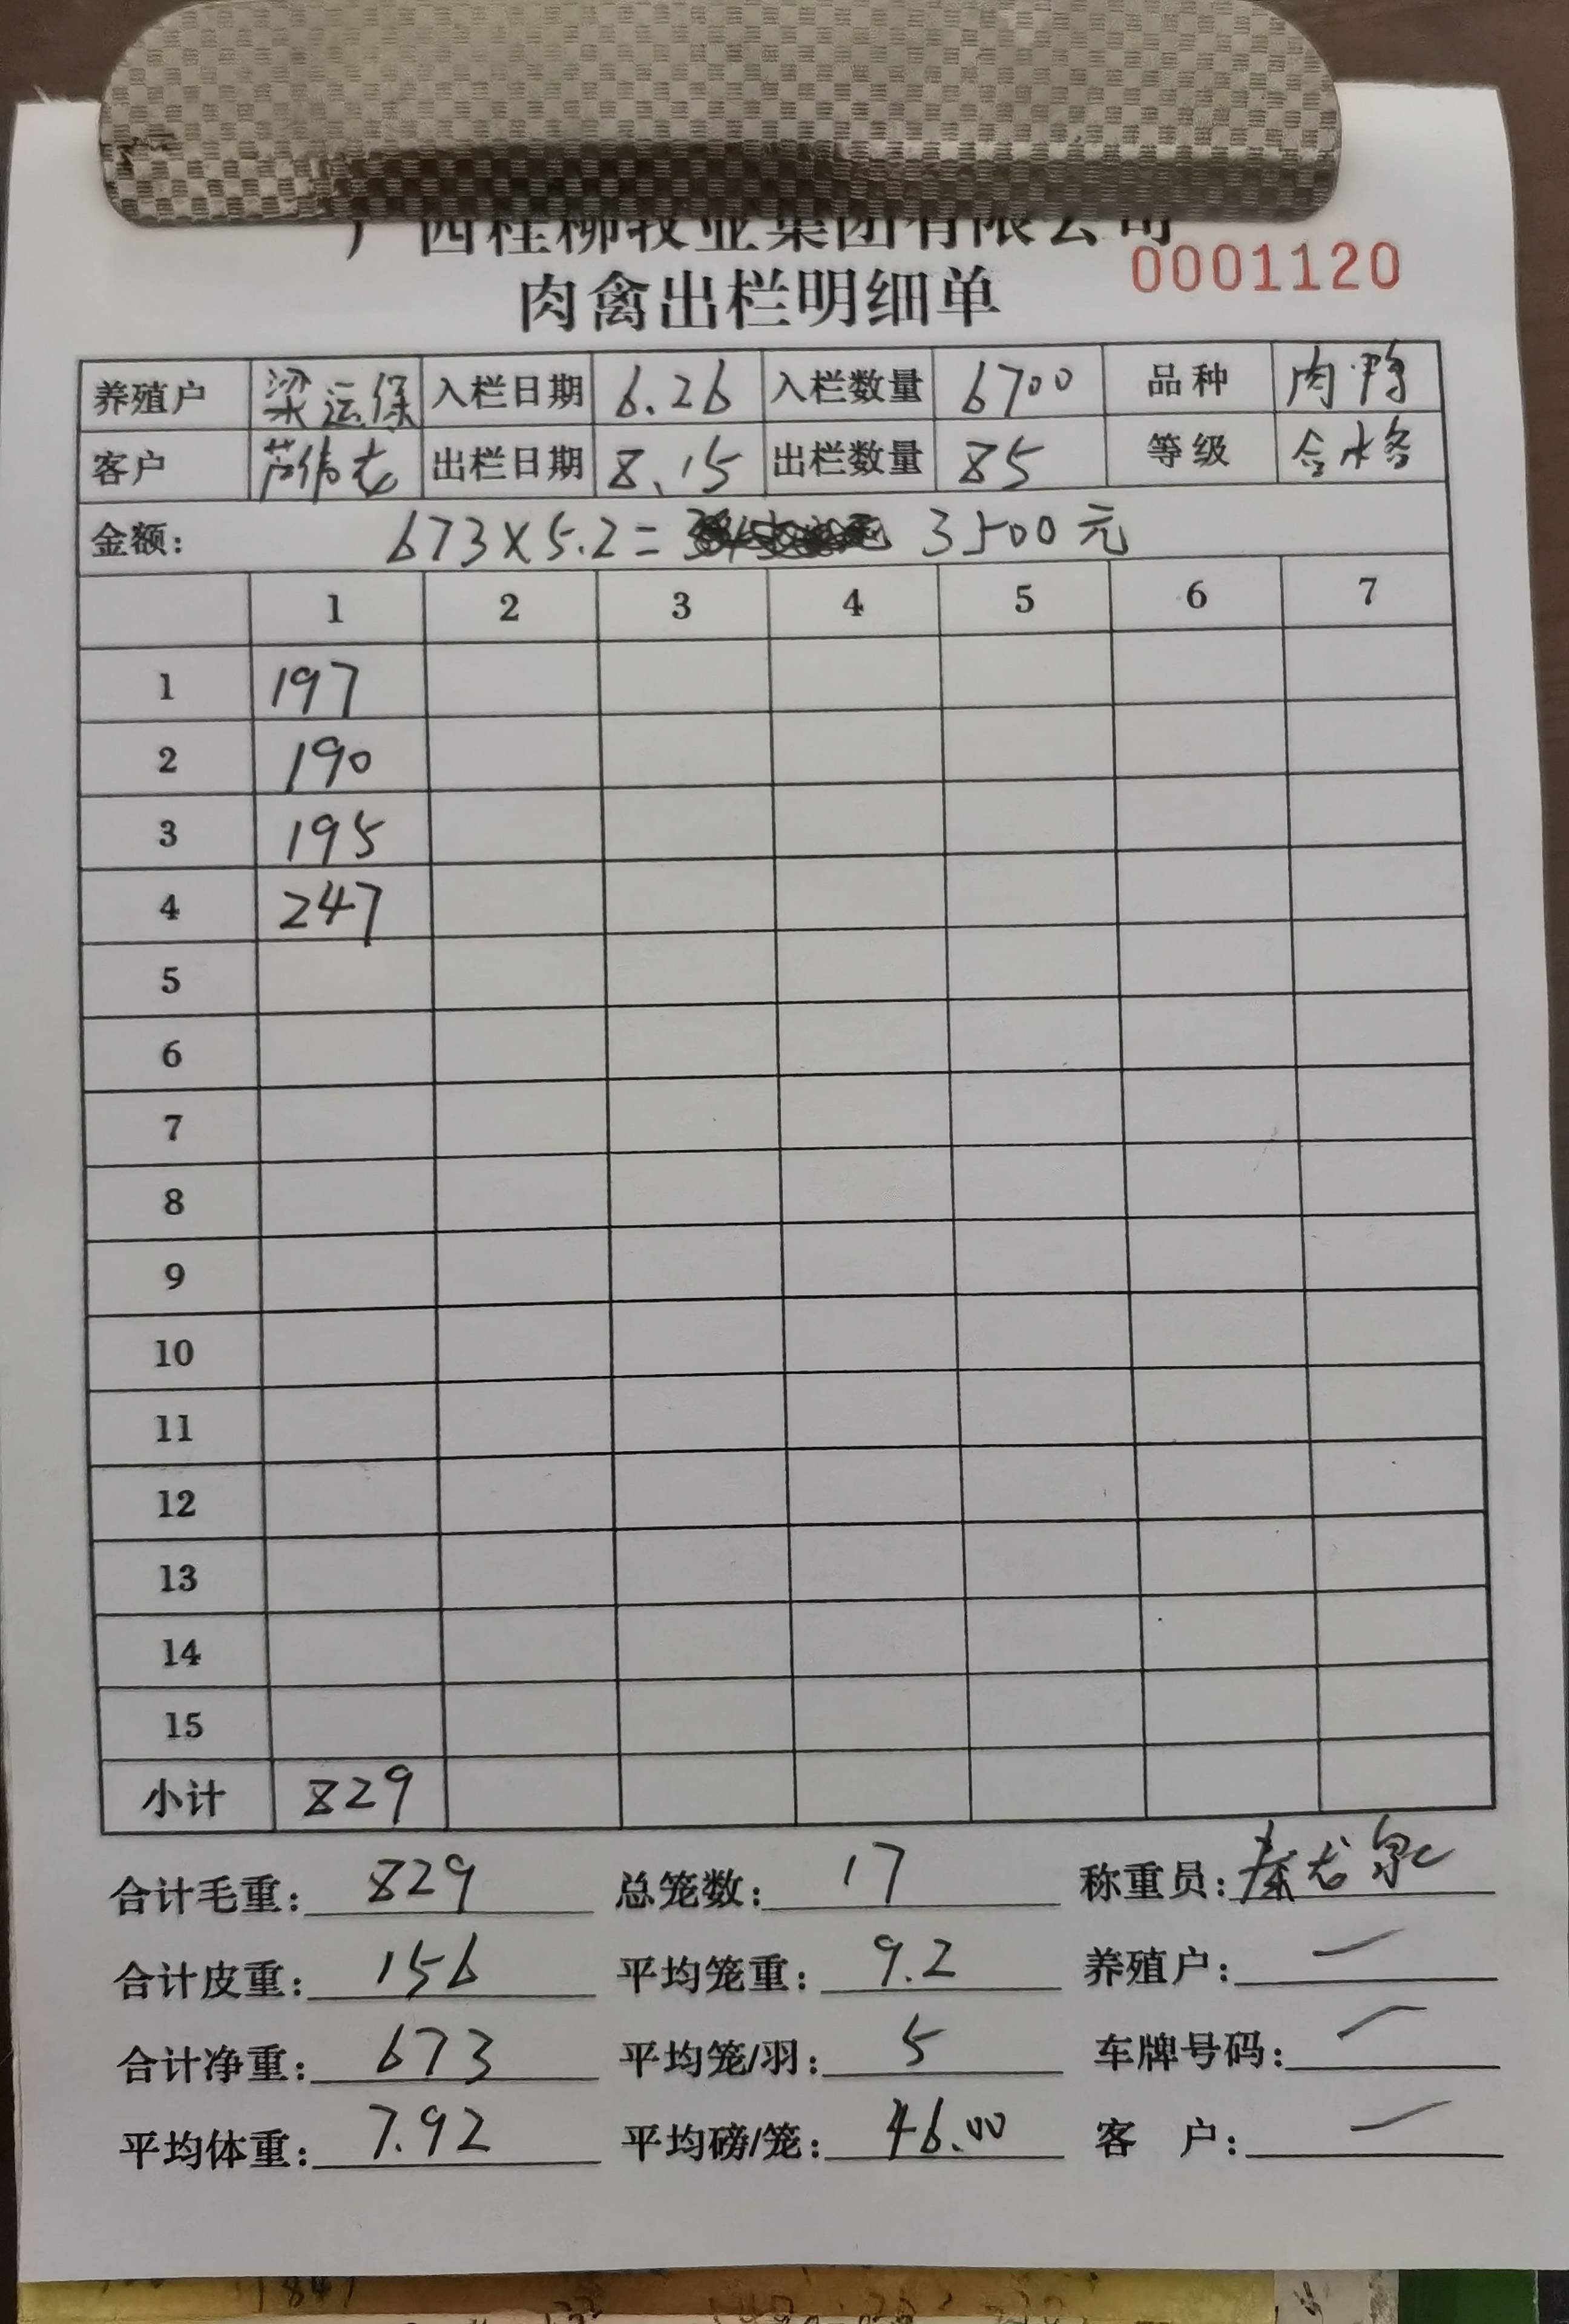 广西桂柳牧业集团有限公司
肉禽出栏明细单 0001120
养殖户 梁运保 入栏日期 6.26 入栏数量 6700 品种 肉鸭
客户 芦伟志 出栏日期 8.15 出栏数量 85 等级 合格
金额: 673×5.2= 3500元
1 2 3 4 5 6 7
1 197
2 190
3 195
4 247
5
6
7
8
9
10
11
12
13
14
15
小计 829
合计毛重: 829 总笼数: 17 称重员: 秦
合计皮重: 156 平均笼重: 9.2 养殖户: 一
合计净重: 673 平均笼/羽: 5 车牌号码: 一
平均体重: 7.92 平均磅/笼: 46.00 客 户: 一